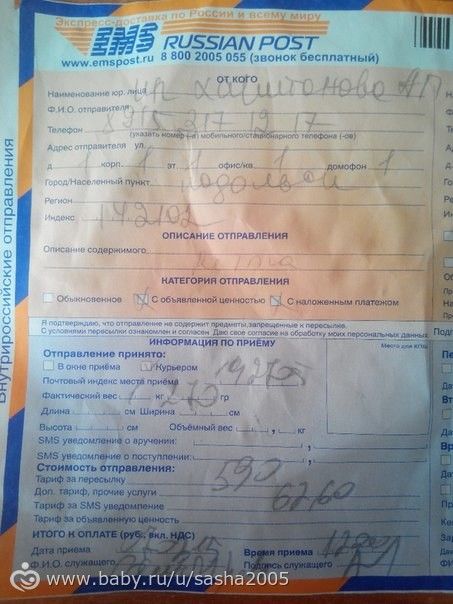 Экспресс-доставка по России и всему миру
EMS RUSSIAN POST
www.emspost.ru 8 800 2005 055 (звонок бесплатный)
Внутрироссийские отправления
ОТ КОГО
Наименование юр. лица ИП
Ф.И.О. отправителя
Телефон 8915 317 12 17
(указать номер (-а) мобильного/стационарного телефона (-ов)
Адрес отправителя ул.
д 1 корп. 1 эт 1 офис/кв 1 домофон 1
Город/Населенный пункт Подольск
Регион
Индекс 142102
ОПИСАНИЕ ОТПРАВЛЕНИЯ
Описание содержимого
КАТЕГОРИЯ ОТПРАВЛЕНИЯ
Обыкновенное С объявленной ценностью С наложенным платежом
Я подтверждаю, что отправление не содержит предметы, запрещенные к пересылке.
С условиями пересылки ознакомлен и согласен. Даю свое согласие на обработку моих персональных данных
ИНФОРМАЦИЯ ПО ПРИЁМУ
Место для КПШ
Отправление принято:
В окне приёма Курьером
Почтовый индекс места приёма
Фактический вес кг 270 гр
Длина см Ширина см
Высота см Объёмный вес , кг
SMS уведомление о вручении:
SMS уведомление о поступлении:
Стоимость отправления:
Тариф за пересылку 590
Доп. тариф, прочие услуги
Тариф за SMS уведомление
Тариф за объявленную ценность
ИТОГО К ОПЛАТЕ (руб., вкл. НДС)
Дата приема Время приема
Ф.И.О. служащего Подпись служащего
www.baby.ru/u/sasha2005